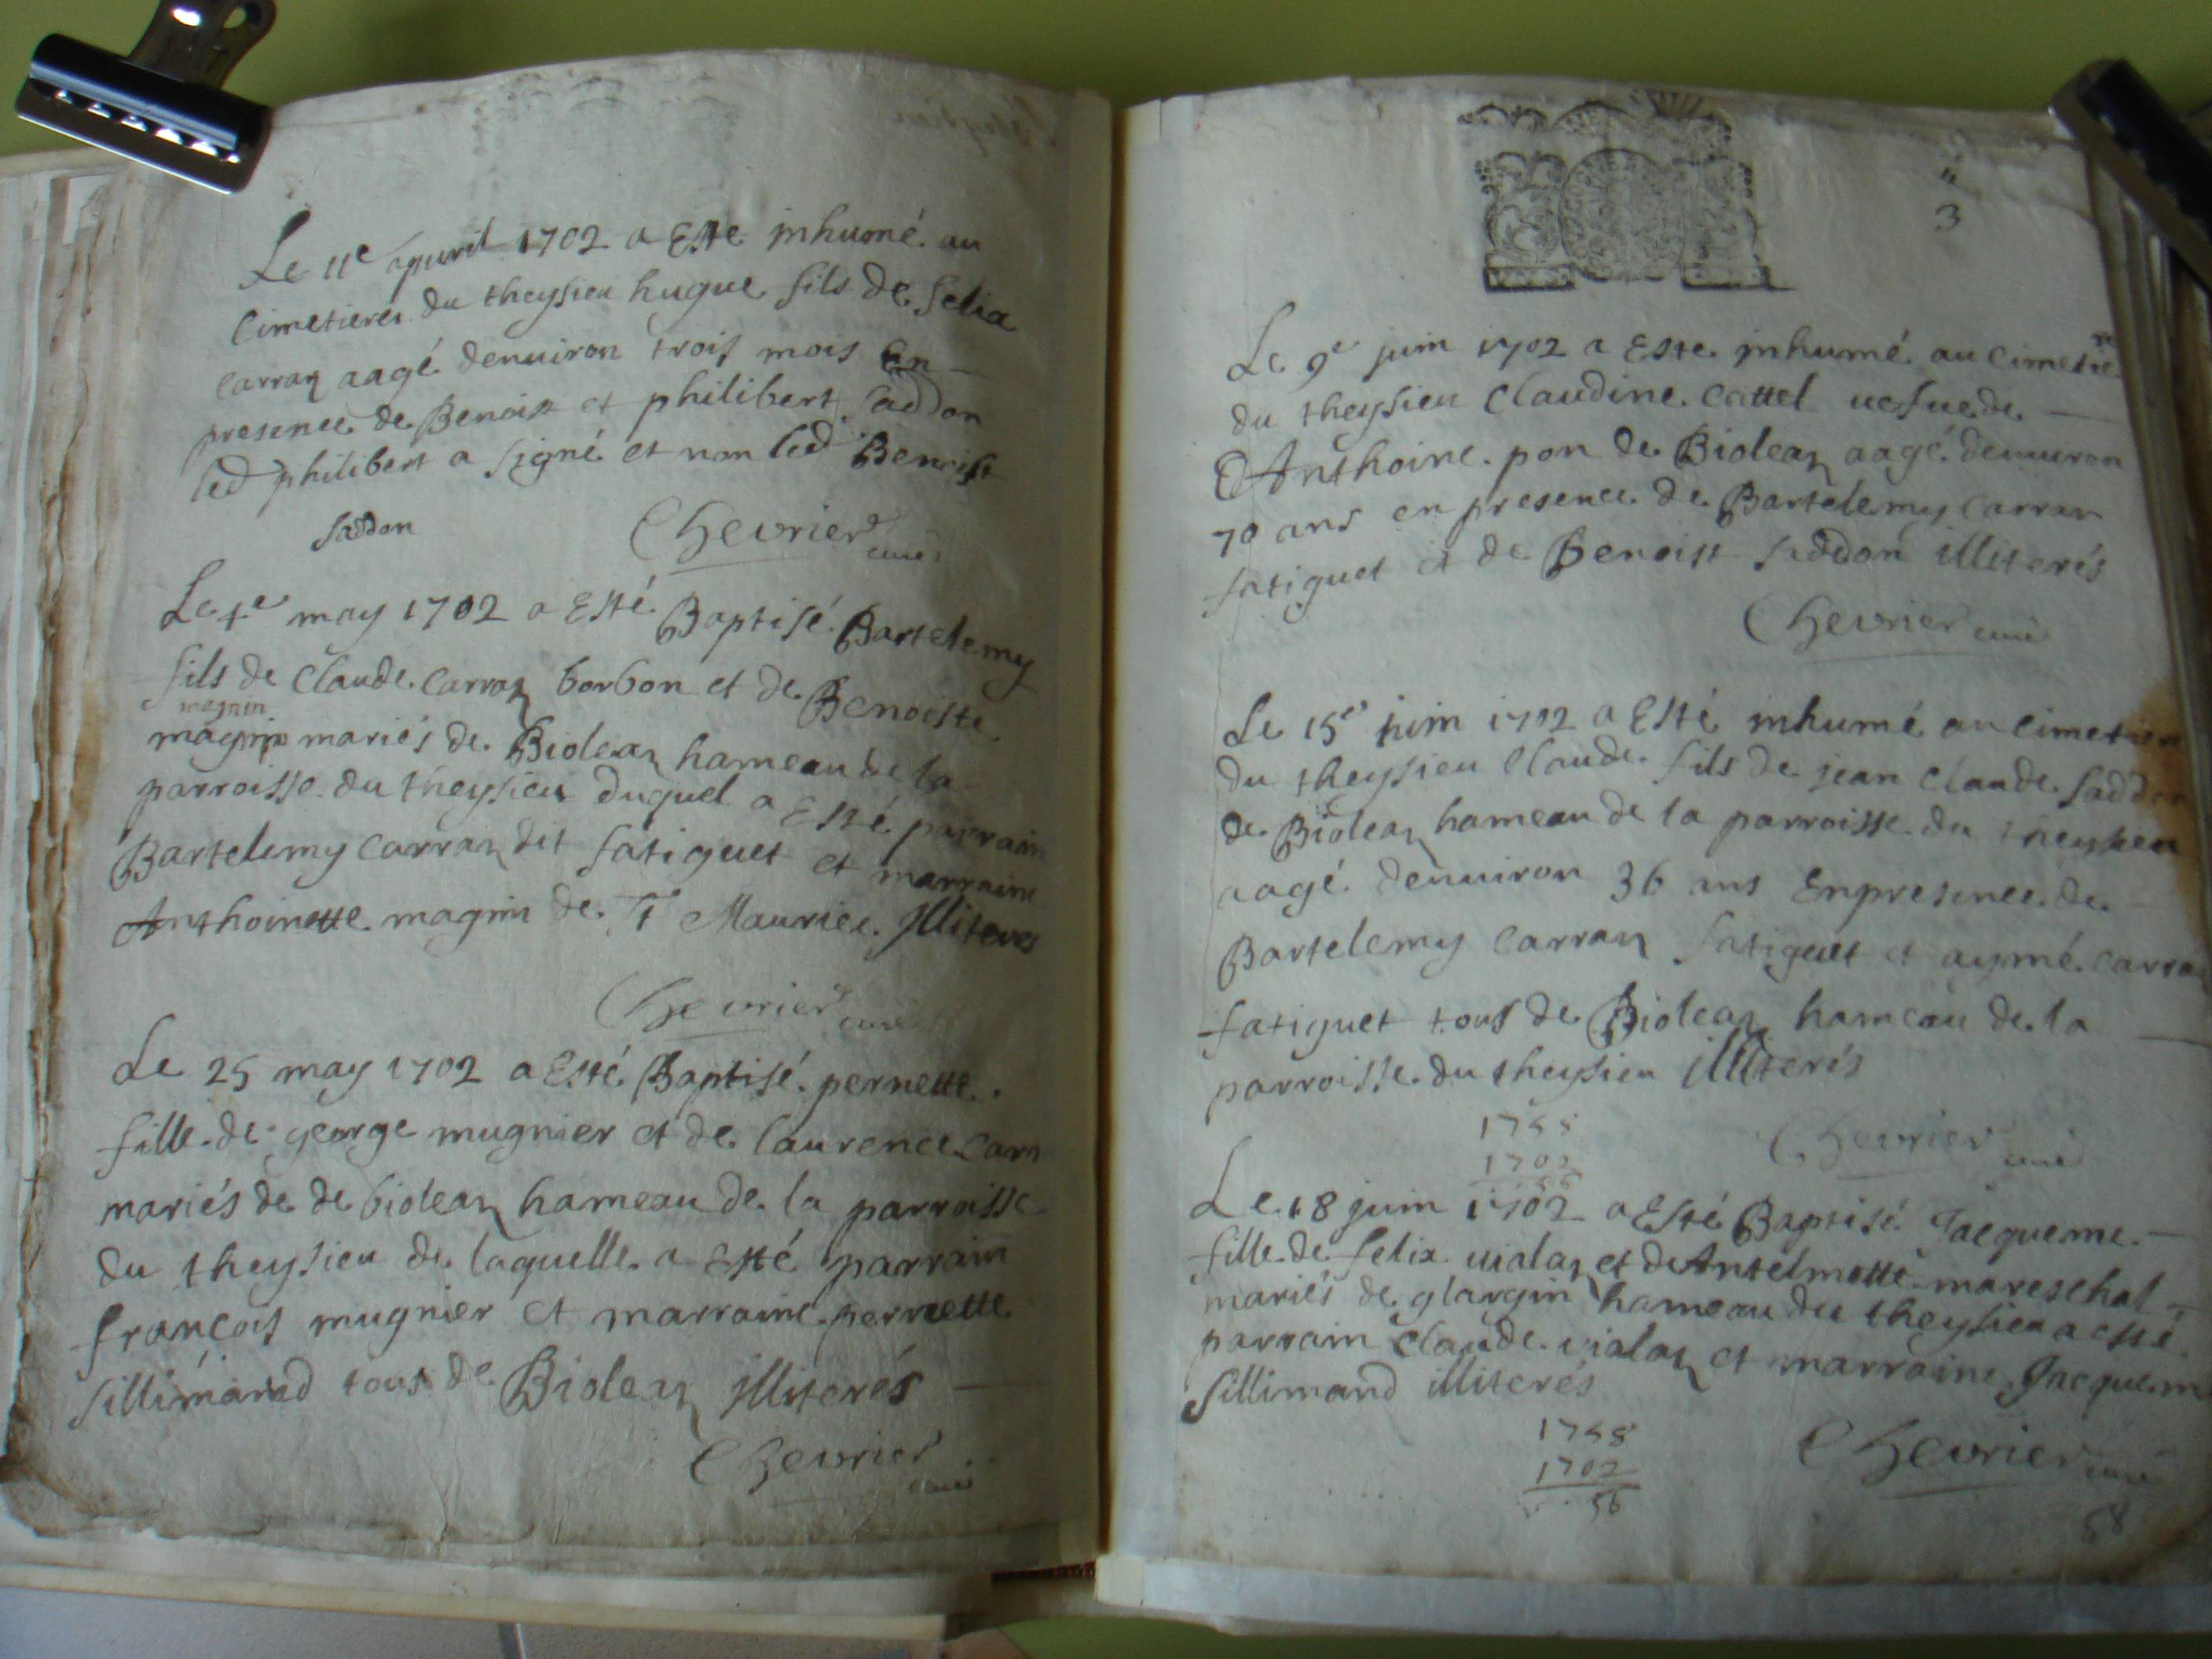 Le 11e apuril 1702 a Este inhumé au
Cimetieres du theysieu hugue fils de felix
Carraz aagé denuiron trois mois En
presence de Benoist et philibert Saddon
led philibert a signé et non led Benoist
Saddon Chevrier curé
Le 4e may 1702 a Esté Baptisé Bartelemy
fils de Claude Carraz borbon et de Benoiste
magnin
magnin mariés de Bioleaz hameau de la
parroisse du theysieu duquel a Esté parrain
Bartelemy Carraz dit fatiguet et marraine
Anthoinette magnin de St Maurice Jlliteres
Chevrier curé
Le 25 may 1702 a Esté Baptisé pernette
fille de george mugnier et de laurence Carr
mariés de de bioleaz hameau de la parroisse
du theysieu de laquelle a Esté parrain
françois mugnier et marraine pernette
Sillimand tous de Bioleaz jlliterés
Chevrier curé
3
Le 9e juin 1702 a Este inhumé au Cimetier
du theysieu Claudine Cattel uefue de
D'Anthoine pon de Bioleaz aagé denuiron
70 ans en presence de Bartelemy Carraz
fatiguet et de Benoist Saddon illiterés
Chevrier curé
Le 15e juin 1702 a Esté inhumé au Cimetier
du theysieu Claude fils de jean Claude Saddon
de Bioleaz hameau de la parroisse du theysieu
aagé denuiron 36 ans En presence de
Bartelemy Carraz fatiguet et aymé Carra
fatiguet tous de Bioleaz hameau de la
parroisse du theysieu jlliterés
1758
1702 Chevrier curé
56
Le 18 juin 1702 a Esté Baptisé Jacqueme
fille de felix uialaz et de Antelmette mareschal
mariés de glargin hameau du theysieu a esté
parrain Claude vialaz et marraine Jacquem
Sillimand illiterés
1758
1702 Chevrier curé
56
58